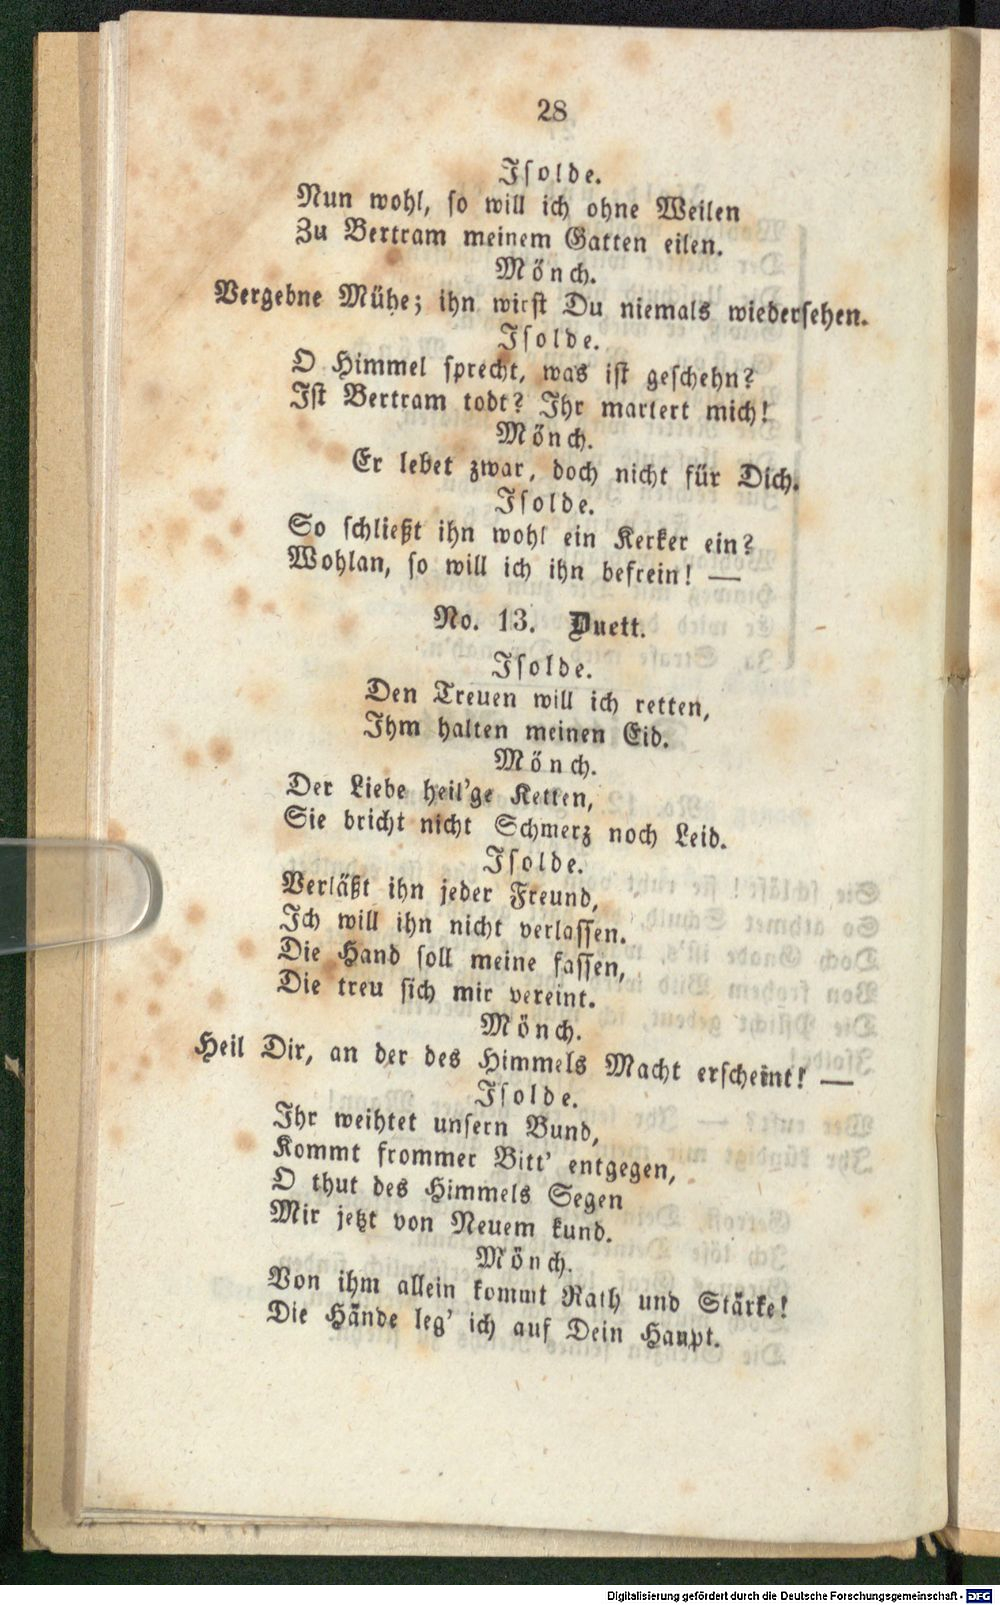 28
Isolde.
Nun wohl, so will ich ohne Weilen
Zu Bertram meinem Gatten eilen.
Mönch.
Vergebne Mühe; ihn wirst Du niemals wiedersehen.
Isolde.
O Himmel sprecht, was ist geschehn?
Ist Bertram todt? Ihr martert mich!
Mönch.
Er lebet zwar, doch nicht für Dich.
Isolde.
So schließt ihn wohl ein Kerker ein?
Wohlan, so will ich ihn befrein! —
No. 13. Duett.
Isolde.
Den Treuen will ich retten,
Ihm halten meinen Eid.
Mönch.
Der Liebe heil'ge Ketten,
Sie bricht nicht Schmerz noch Leid.
Isolde.
Verläßt ihn jeder Freund,
Ich will ihn nicht verlassen.
Die Hand soll meine fassen,
Die treu sich mir vereint.
Mönch.
Heil Dir, an der des Himmels Macht erscheint! —
Isolde.
Ihr weihtet unsern Bund,
Kommt frommer Bitt' entgegen,
O thut des Himmels Segen
Mir jetzt von Neuem kund.
Mönch.
Von ihm allein kommt Rath und Stärke!
Die Hände leg' ich auf Dein Haupt.
Digitalisierung gefördert durch die Deutsche Forschungsgemeinschaft - DFG